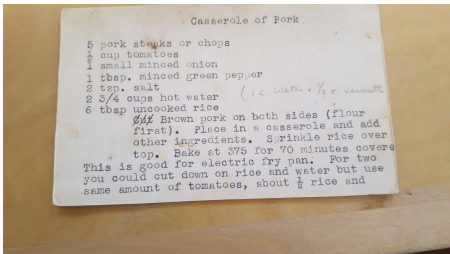 Casserole of Pork
5 pork steaks or chops
½ cup tomatoes
1 small minced onion
1 tbsp. minced green pepper
2 tsp. salt
2 3/4 cups hot water (1 c water + ½ c vermouth
6 tbsp uncooked rice
Brown pork on both sides (flour
first). Place in a casserole and add
other ingredients. Sprinkle rice over
top. Bake at 375 for 70 minutes covere
This is good for electric fry pan. For two
you could cut down on rice and water but use
same amount of tomatoes, about ½ rice and